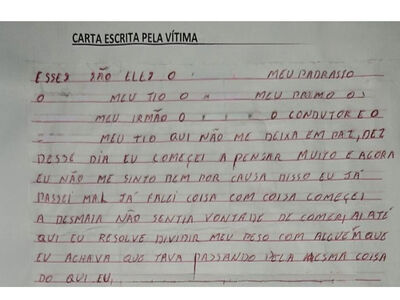 CARTA ESCRITA PELA VÍTIMA
ESSES SÃO ELLES O MEU PADRASTO
O MEU TIO O MEU PRIMO OS
MEU IRMÃO O O CONDUTOR E O
MEU TIO QUI NÃO ME DEIXA EM PAZ, DEZ
DESSE DIA EU COMEÇEI A PENSAR MUITO E AGORA
EU NÃO ME SINTO BEM POR CAUSA DISSO EU JÁ
PASSEI MAL JÁ FALEI COISA COM COISA COMEÇEI
A DESMAIA NÃO SENTIA VONTADE DE COMER, AI ATÉ
QUI EU RESOLVE DIVIDIR MEU PESO COM ALGUÉM QUE
EU ACHAVA QUE TAVA PASSANDO PELA MESMA COISA
DO QUI EU,